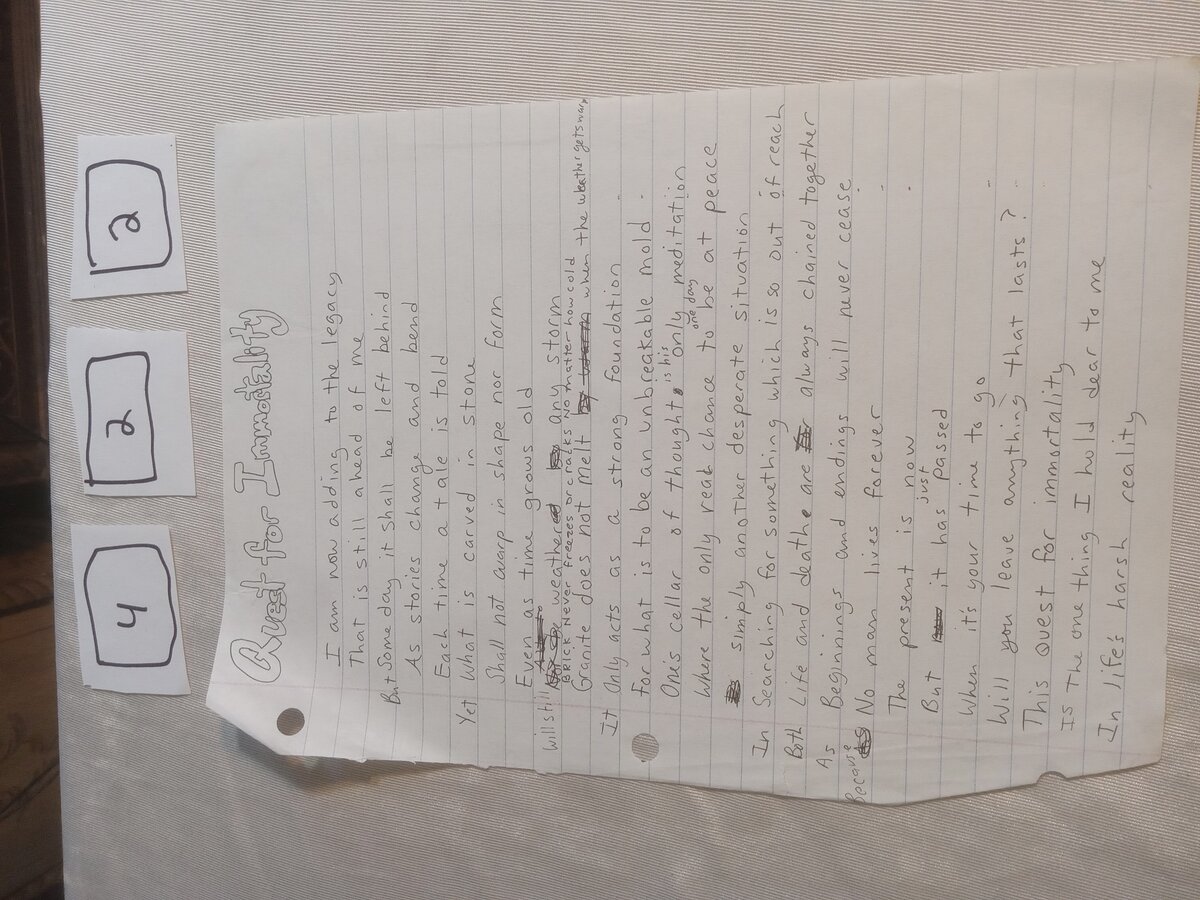 4 2 2
Quest for Immotality
I am now adding to the legacy
That is still ahead of me
But Some day it shall be left behind
As stories change and bend
Each time a tale is told
Yet What is carved in stone
Shall not warp in shape nor form
Even as time grows old
Will still weather any storm
BRICK Never Freezes or cracks No matter how cold
Granite does not melt when the weather gets warm
It Only acts as a strong foundation
For what is to be an unbreakable mold
Onis cellar of thought is his only meditation
Where the only real chance one day to be at peace
Is simply another desperate situation
In Searching for something which is so out of reach
Both Life and deathe are always chained together
As Beginnings and endings will never cease
Because No man lives forever
The present is now
But it has just passed
When it's your time to go
Will you leave anything that lasts?
This Quest for immortality
Is The one thing I hold dear to me
In life's harsh reality